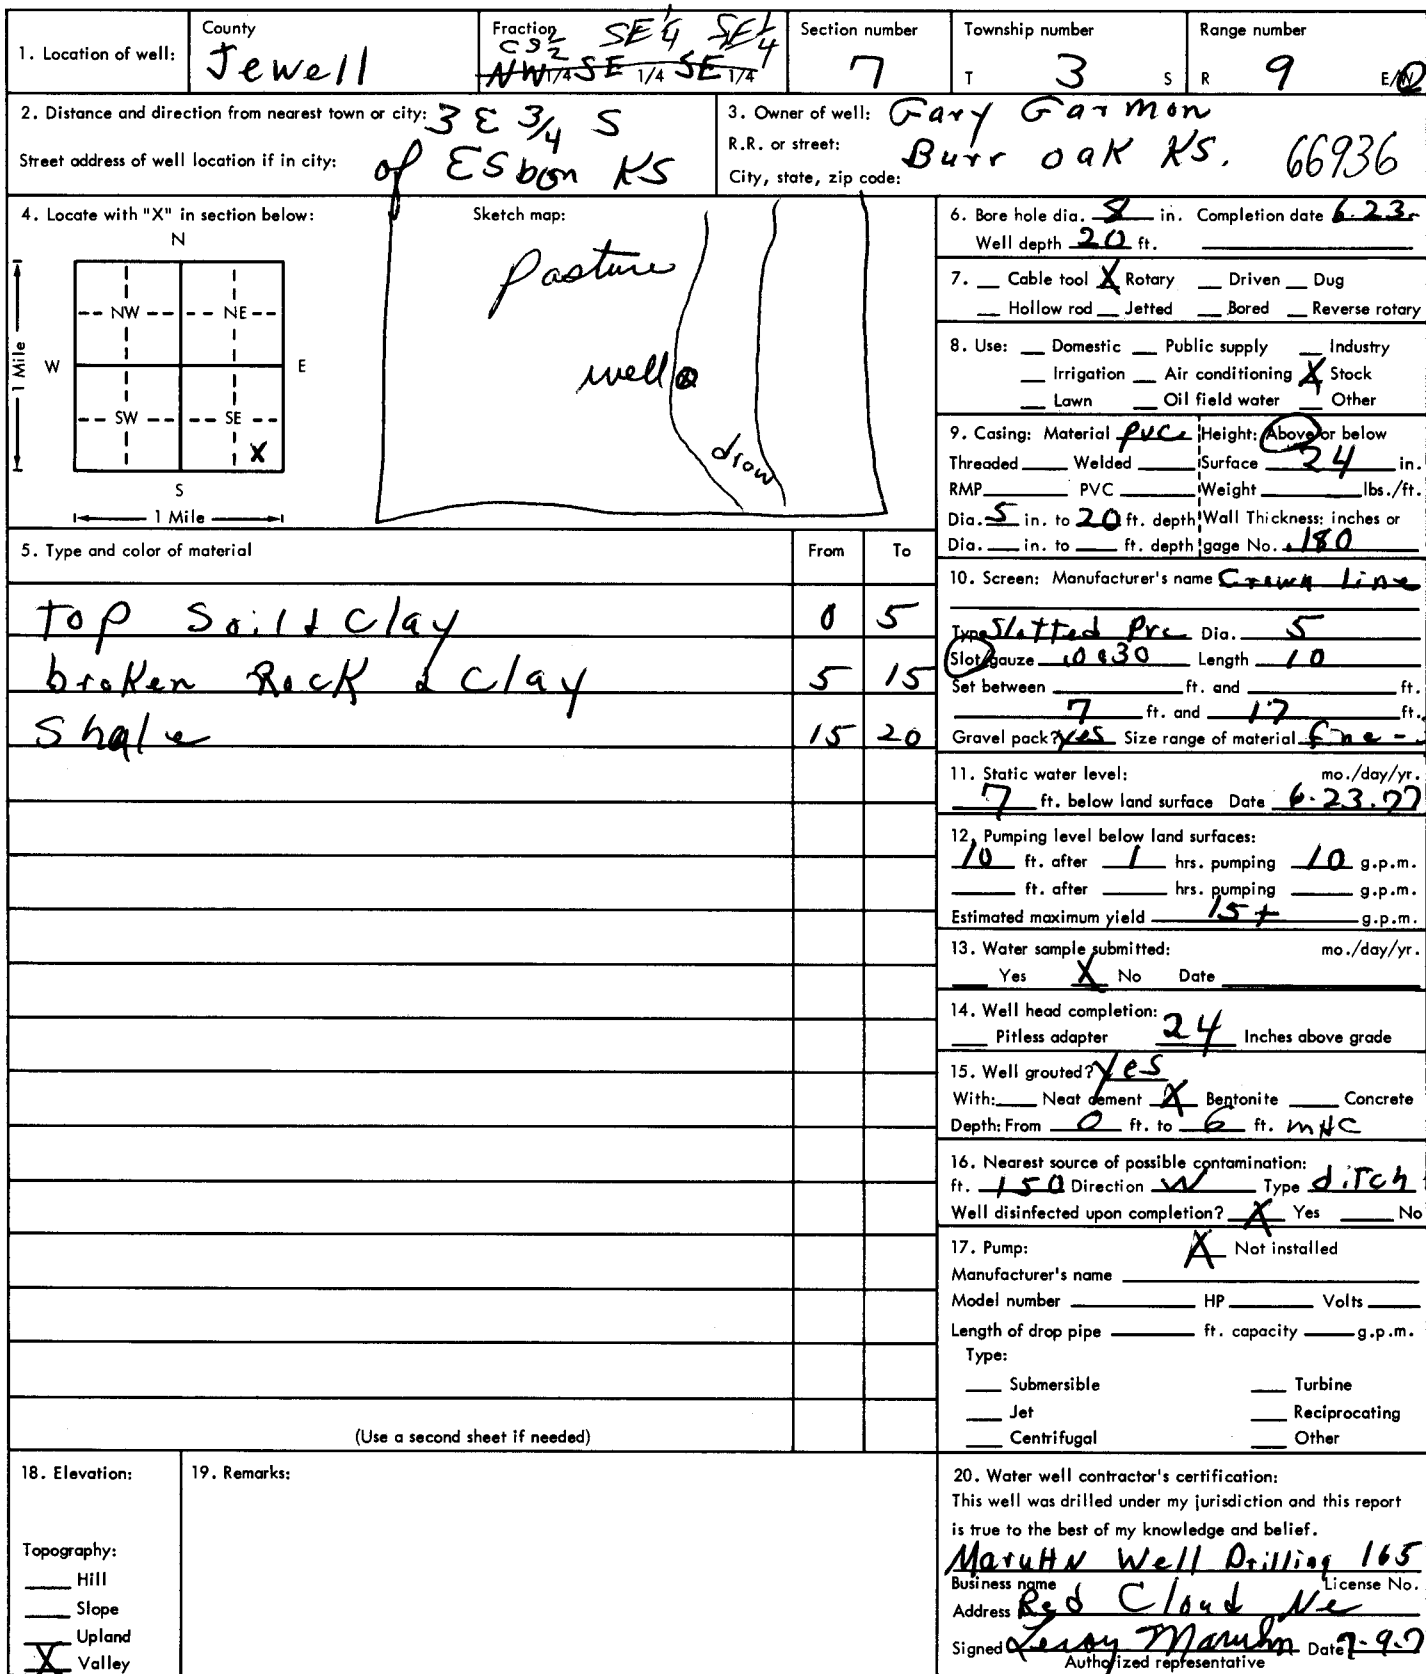 1. Location of well: County Jewell Fraction CS½ SE¼ SE¼ NW 1/4 SE 1/4 SE 1/4 Section number 7 Township number T 3 S Range number R 9 E/W
2. Distance and direction from nearest town or city: 3 E 3/4 S
Street address of well location if in city: of Esbon KS
3. Owner of well: Gary Garmon
R.R. or street: Burr oak KS. 66936
City, state, zip code:
4. Locate with "X" in section below:
N
NW NE
W E
SW SE
X
S
1 Mile
1 Mile
Sketch map:
Pasture
well
draw
5. Type and color of material From To
Top Soil & Clay 0 5
broken Rock & Clay 5 15
Shale 15 20
(Use a second sheet if needed)
6. Bore hole dia. 8 in. Completion date 6.23-
Well depth 20 ft.
7. Cable tool X Rotary Driven Dug
Hollow rod Jetted Bored Reverse rotary
8. Use: Domestic Public supply Industry
Irrigation Air conditioning X Stock
Lawn Oil field water Other
9. Casing: Material PVC Height: Above or below
Threaded Welded Surface 24 in.
RMP PVC Weight lbs./ft.
Dia. 5 in. to 20 ft. depth Wall Thickness: inches or
Dia. in. to ft. depth gage No. .180
10. Screen: Manufacturer's name Crown Line
Type Slotted Pvc Dia. 5
Slot/gauze Length 10
Set between ft. and ft.
7 ft. and 17 ft.
Gravel pack? yes Size range of material fine -
11. Static water level: mo./day/yr.
7 ft. below land surface Date 6.23.77
12. Pumping level below land surfaces:
10 ft. after 1 hrs. pumping 10 g.p.m.
ft. after hrs. pumping g.p.m.
Estimated maximum yield 15+ g.p.m.
13. Water sample submitted: mo./day/yr.
Yes X No Date
14. Well head completion:
Pitless adapter 24 Inches above grade
15. Well grouted? Yes
With: Neat cement X Bentonite Concrete
Depth: From 0 ft. to 6 ft. mHC
16. Nearest source of possible contamination:
ft. 150 Direction W Type ditch
Well disinfected upon completion? X Yes No
17. Pump: X Not installed
Manufacturer's name
Model number HP Volts
Length of drop pipe ft. capacity g.p.m.
Type:
Submersible Turbine
Jet Reciprocating
Centrifugal Other
18. Elevation:
Topography:
Hill
Slope
Upland
X Valley
19. Remarks:
20. Water well contractor's certification:
This well was drilled under my jurisdiction and this report
is true to the best of my knowledge and belief.
MaruHN Well Drilling 165
Business name License No.
Address Red Cloud Ne
Signed Leroy Maruhn Date 7-9-7
Authorized representative